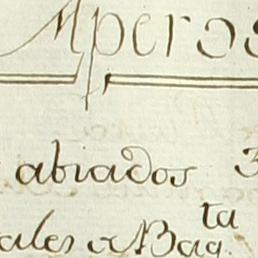 Aperos
abiados 3
ales a Bag.ta